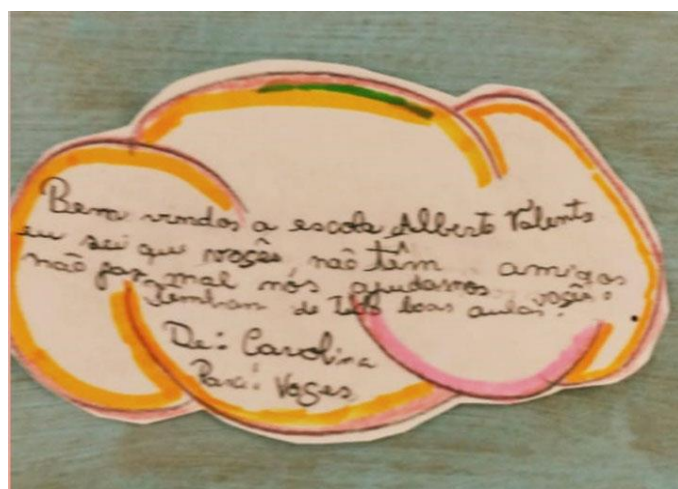 Bem vindos a escola Alberto Valente
eu sei que vosês não têm amigos
não faz mal nós ajudamos vosês.
tenham de tudo boas aulas!
De: Carolina
Para: Voses